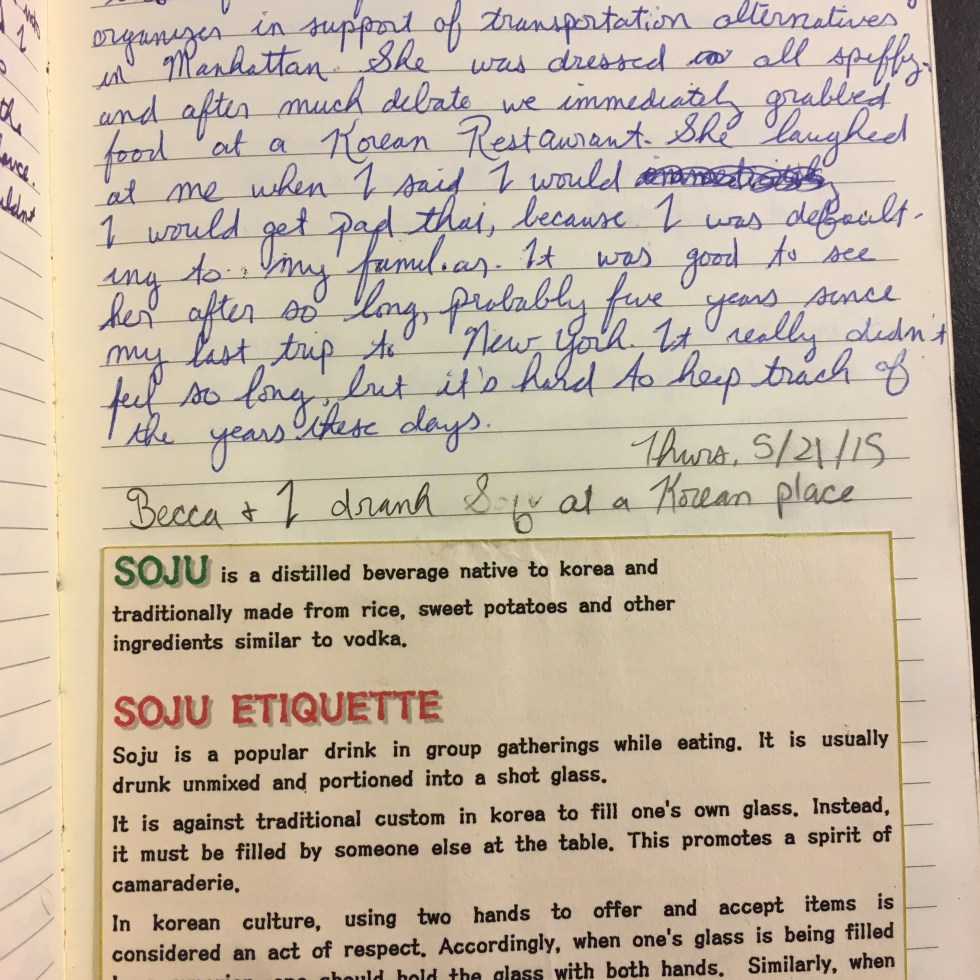 organizer in support of transportation alternatives
in Manhattan. She was dressed all spiffy.
and after much debate we immediately grabbed
food at a Korean Restaurant. She laughed
at me when I said I would
I would get pad thai, because I was default-
ing to my familiar. It was good to see
her after so long, probably five years since
my last trip to New York. It really didn't
feel so long, but it's hard to keep track of
the years these days.
Thurs, 5/21/15
Becca + I drank at a Korean place
SOJU is a distilled beverage native to korea and
traditionally made from rice, sweet potatoes and other
ingredients similar to vodka.
SOJU ETIQUETTE
Soju is a popular drink in group gatherings while eating. It is usually
drunk unmixed and portioned into a shot glass.
It is against traditional custom in korea to fill one's own glass. Instead,
it must be filled by someone else at the table. This promotes a spirit of
camaraderie.
In korean culture, using two hands to offer and accept items is
considered an act of respect. Accordingly, when one's glass is being filled
one should hold the glass with both hands. Similarly, when